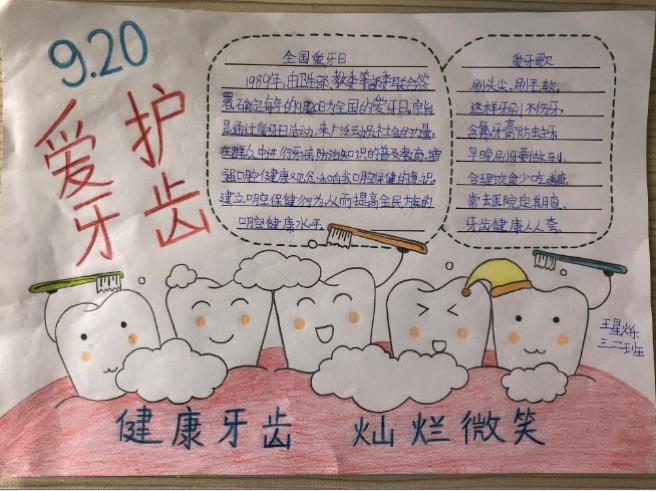 9.20
爱护
牙齿
全国爱牙日
1989年,由卫生部、教委等部委联合签
署,确定每年的9月20日为全国的爱牙日。宗旨
是通过爱牙日活动,来广泛动员社会的力量,
在群人中进行牙病防治知识的普及教育,增
强口腔健康观念和自我口腔保健的意识,
建立口腔保健行为,从而提高全民方位的
口腔健康水平。
爱牙歌
刷头尖,刷毛软,
这样牙刷不伤牙,
含氟牙膏防虫牙
早晚刷牙要做到,
合理饮食少吃糖,
常去医院定期查,
牙齿健康人人夸。
王星烁
三二班
健康牙齿 灿烂微笑